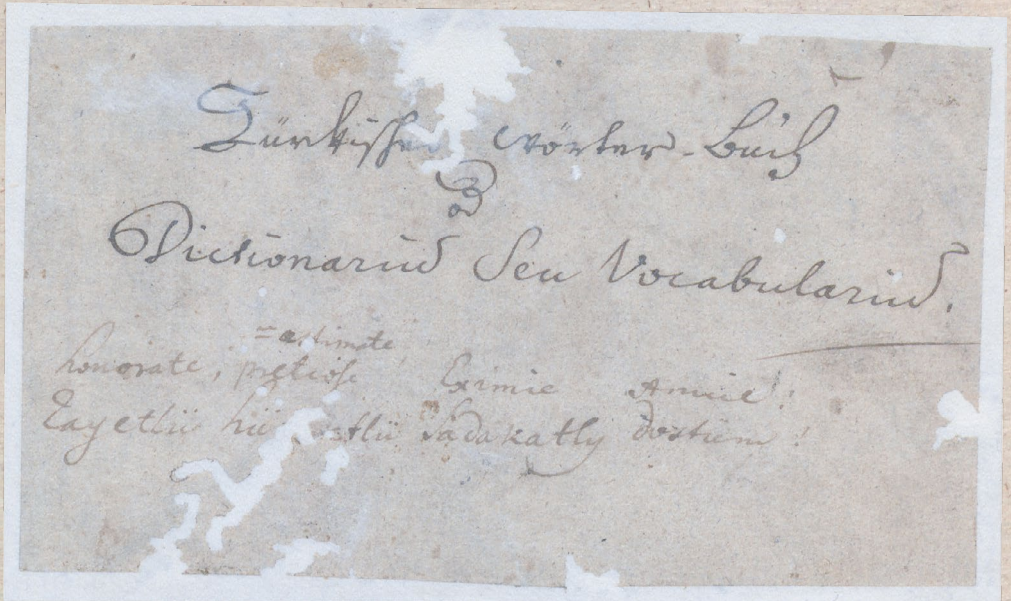 Türkisches Wörter-Büch
Dictionariū Seu Vocabulariū.
=æstimate
honorate, pretiose Eximie Amice!
hü etlü Sadakatly dostüm!